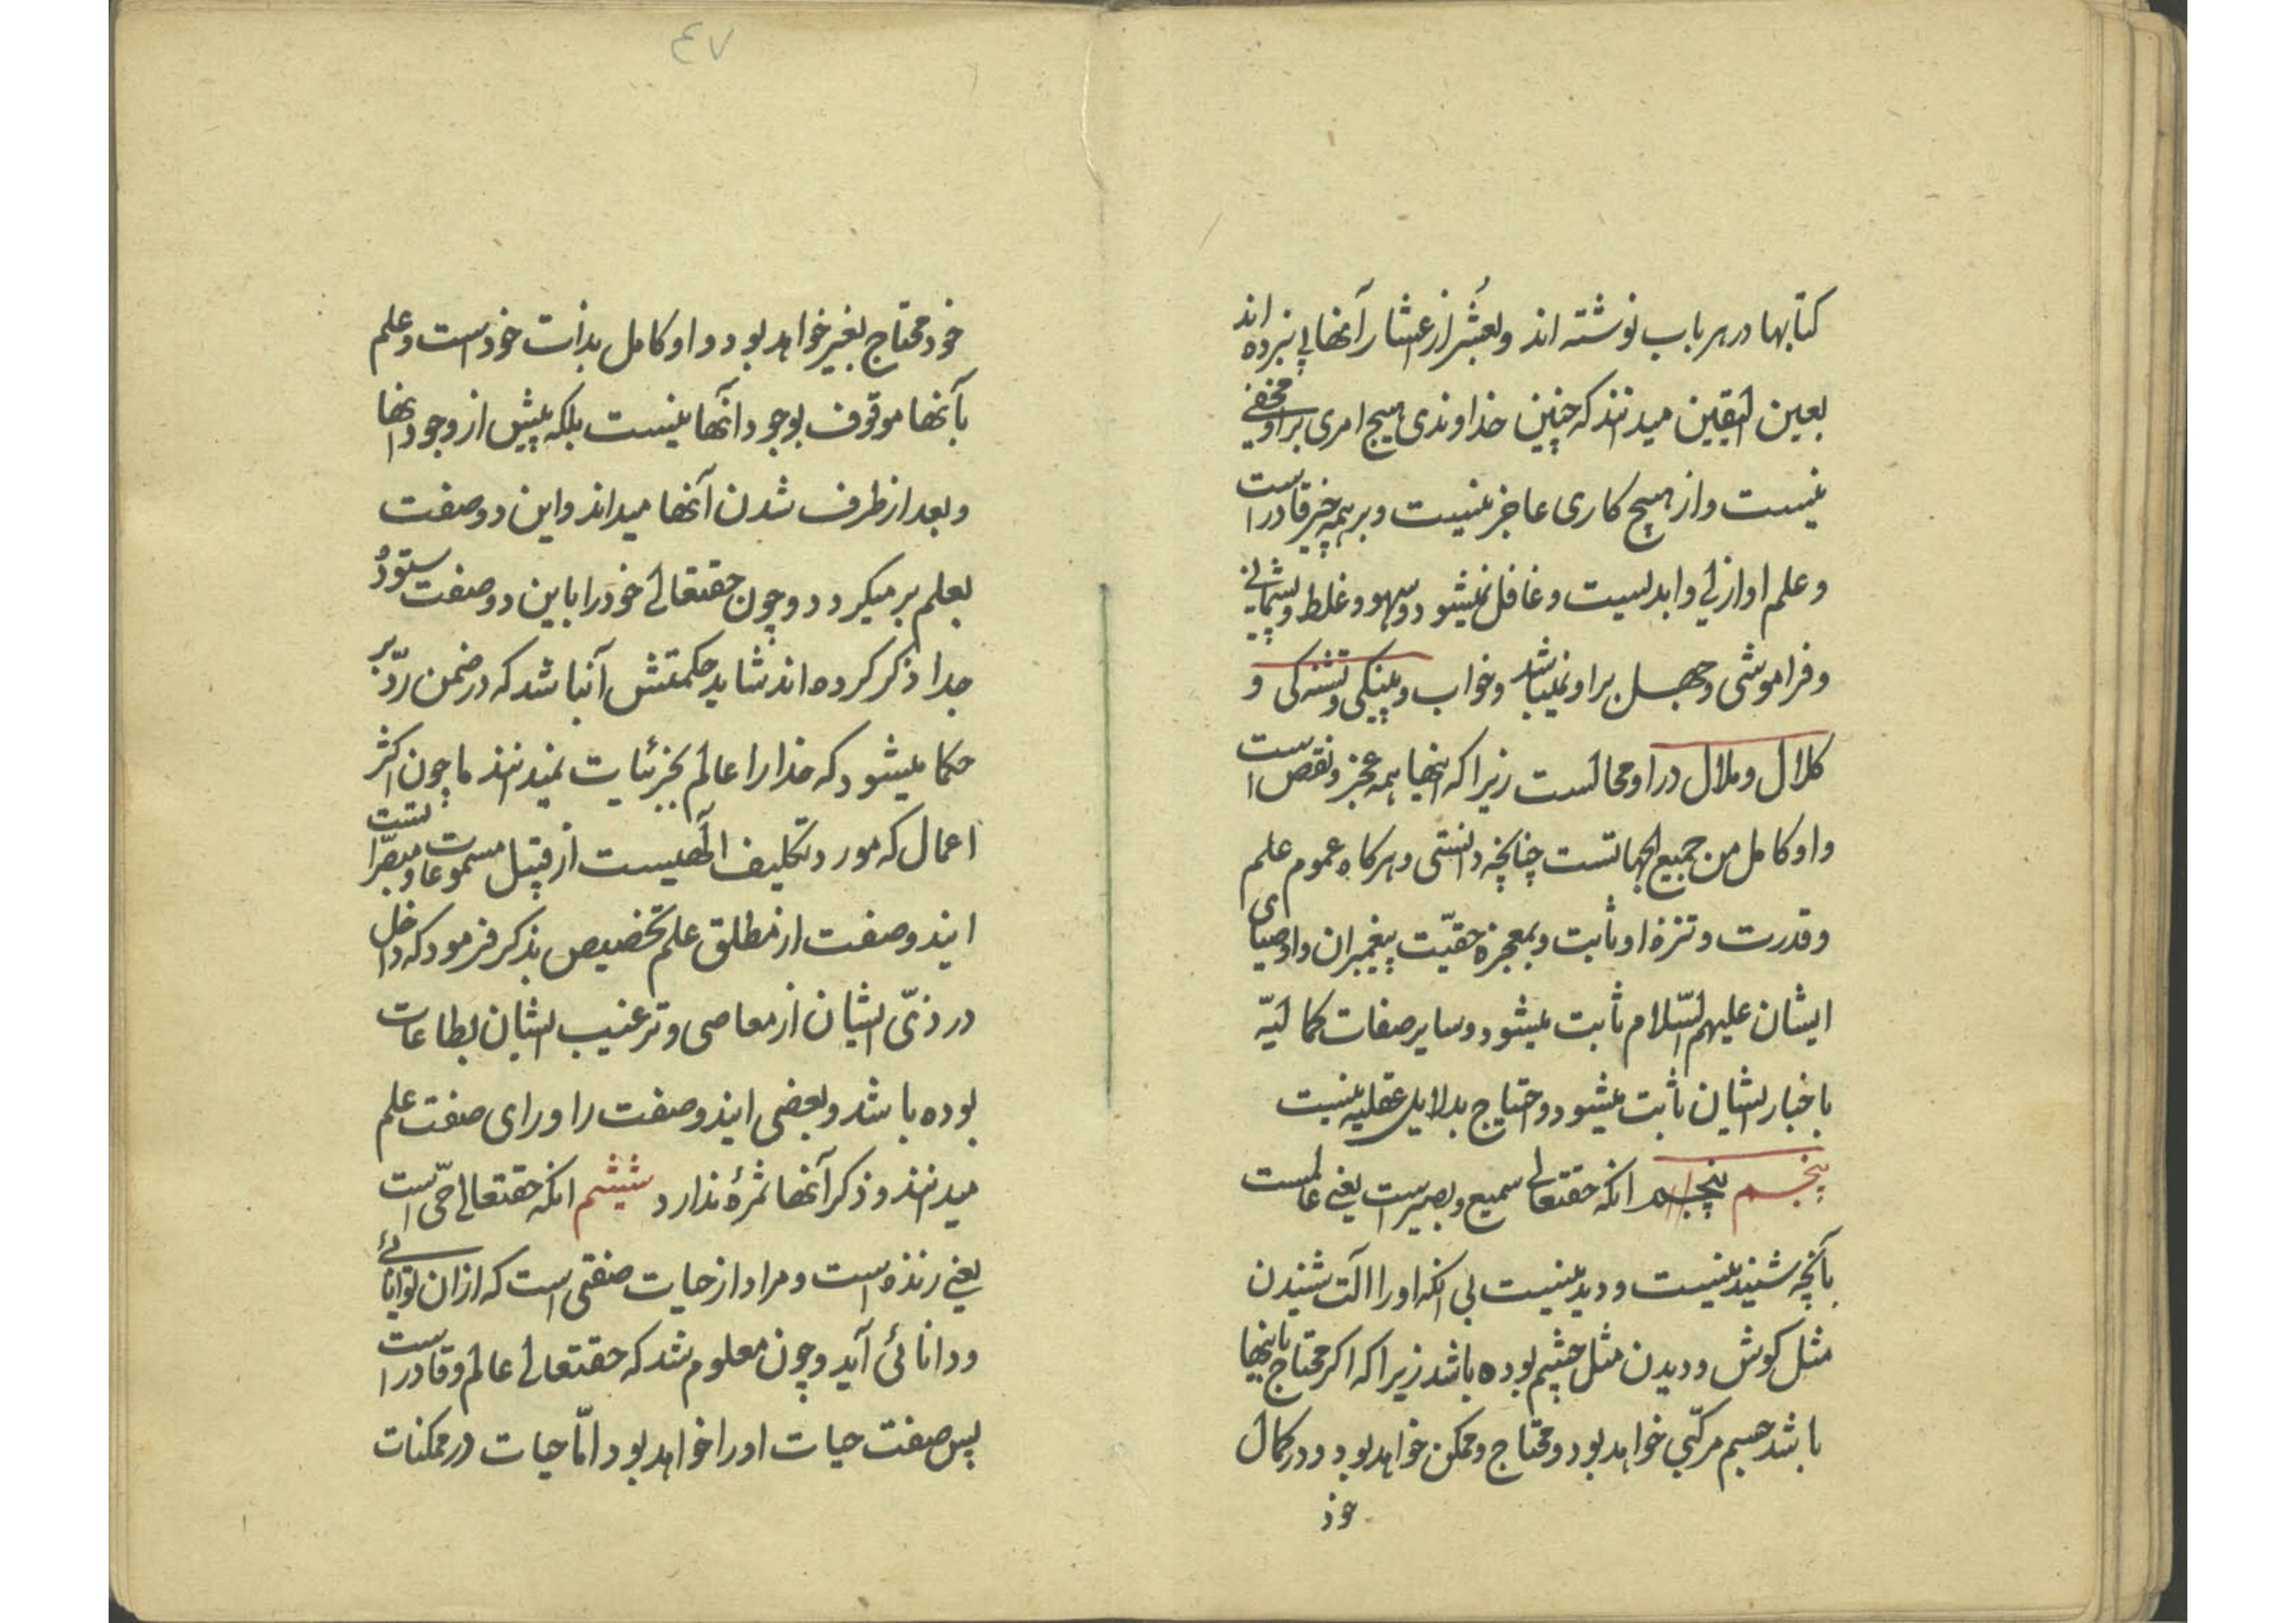 کتابها در هر باب نوشته اند و بعُشر از عشار آنها پی نبرده اند
بعین الیقین میدانند که چنین خداوندی هیچ امری بر او مخفی
نیست و از هیچ کاری عاجز نیست و بر همه چیز قادر است
و علم او ازلی و ابدیست و غافل نمیشود و سهو و غلط و پشیمانی
و فراموشی و جهل بر او نمیباشد و خواب و پینکی و تشنه کی و
کلال و ملال در او محالست زیرا که اینها همه عجز و نقص است
و او کامل من جمیع الجهاتست چنانچه دانستی و هرکاه عموم علم
و قدرت و تنزه او ثابت و بمعجزه حقیّت پیغمبران و اوصیای
ایشان علیهم السّلام ثابت میشود و سایر صفات کمالیّه
باخبار ایشان ثابت میشود و احتیاج بدلایل عقلیه نیست
پنجم پنجم انکه حقتعالی سمیع و بصیر است یعنی عالمست
بآنچه شنیدنیست و دیدنیست بی انکه او را آلت شنیدن
مثل کوش و دیدن مثل چشم بوده باشد زیرا که اکر محتاج باینها
باشد جسم مرکّبی خواهد بود و محتاج و ممکن خواهد بود و در کمال
خود
۴۷
خود محتاج بغیر خواهد بود و او کامل بذات خود است و علم
بآنها موقوف بوجود آنها نیست بلکه پیش از وجود انها
و بعد از طرف شدن آنها میداند و این دو صفت
بعلم برمیکردد و چون حقتعالی خود را باین دو صفت ستوده
جدا ذکر کرده اند شاید حکمتش آنباشد که در ضمن ردّ بر
حکما میشود که خدا را عالم بجزئیات نمیدانند یا چون اکثر
اعمال که مورد تکلیف الهیست از قبیل مسموعات و مبصراتست
ایندو صفت از مطلق علم تخصیص بذکر فرمود که داخل
در ذیّ ایشان از معاصی و ترغیب ایشان بطاعات
بوده باشد و بعضی ایندو صفت را ورای صفت علم
میدانند و ذکر آنها ثمرهٔ ندارد ششم انکه حقتعالی حیّ است
یعنی زنده است و مراد از حیات صفتی است که از ان توانائی
و دانائی آید و چون معلوم شد که حقتعالی عالم و قادر است
پس صفت حیات او را خواهد بود امّا حیات در ممکنات